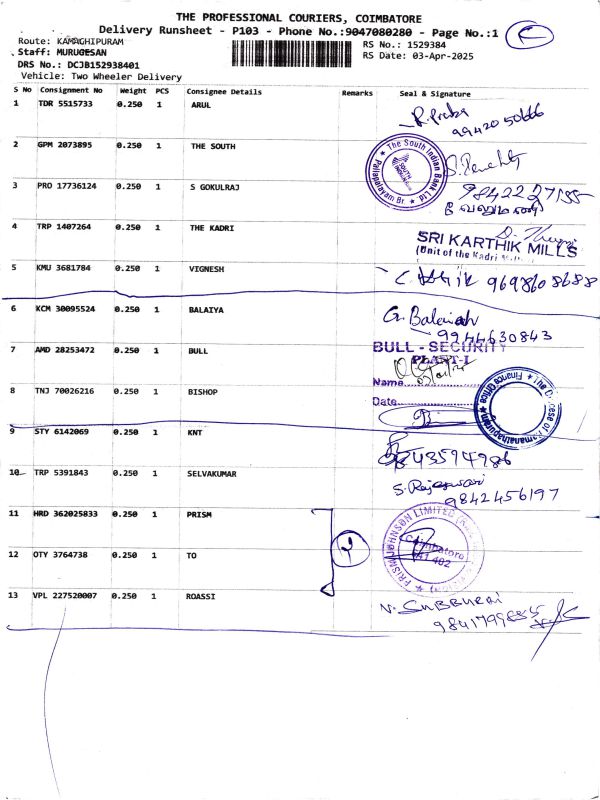 THE PROFESSIONAL COURIERS, COIMBATORE
Delivery Runsheet - P103 - Phone No.:9047080280 - Page No.:1
Route: KAMACHIPURAM
Staff: MURUGESAN
DRS No.: DCJB152938401
Vehicle: Two Wheeler Delivery
RS No.: 1529384
RS Date: 03-Apr-2025
S No Consignment No Weight PCS Consignee Details Remarks Seal & Signature
1 TDR 5515733 0.250 1 ARUL
R. Praba
9942050666
2 GPM 2073895 0.250 1 THE SOUTH
The South Indian Bank Ltd
Pallapalayam Br
SOUTH INDIAN
3 PRO 17736124 0.250 1 S GOKULRAJ
4 TRP 1407264 0.250 1 THE KADRI
SRI KARTHIK MILLS
(Unit of the Kadri
5 KMU 3681784 0.250 1 VIGNESH
9698608688
6 KCM 30095524 0.250 1 BALAIYA
G. Balaiah
9944630843
7 AMD 28253472 0.250 1 BULL
BULL - SECURITY
PLANT-I
Name
Date
8 TNJ 70026216 0.250 1 BISHOP
The Diocese of Ramanathapuram
Finance Office
9 STY 6142069 0.250 1 KNT
9843594986
10 TRP 5391843 0.250 1 SELVAKUMAR
S. Rajeswari
9842456197
11 HRD 362025833 0.250 1 PRISM
PRISM JOHNSON LIMITED
Coimbatore
641 402
12 OTY 3764738 0.250 1 TO
13 VPL 227520007 0.250 1 ROASSI
N. SUBBURAJ